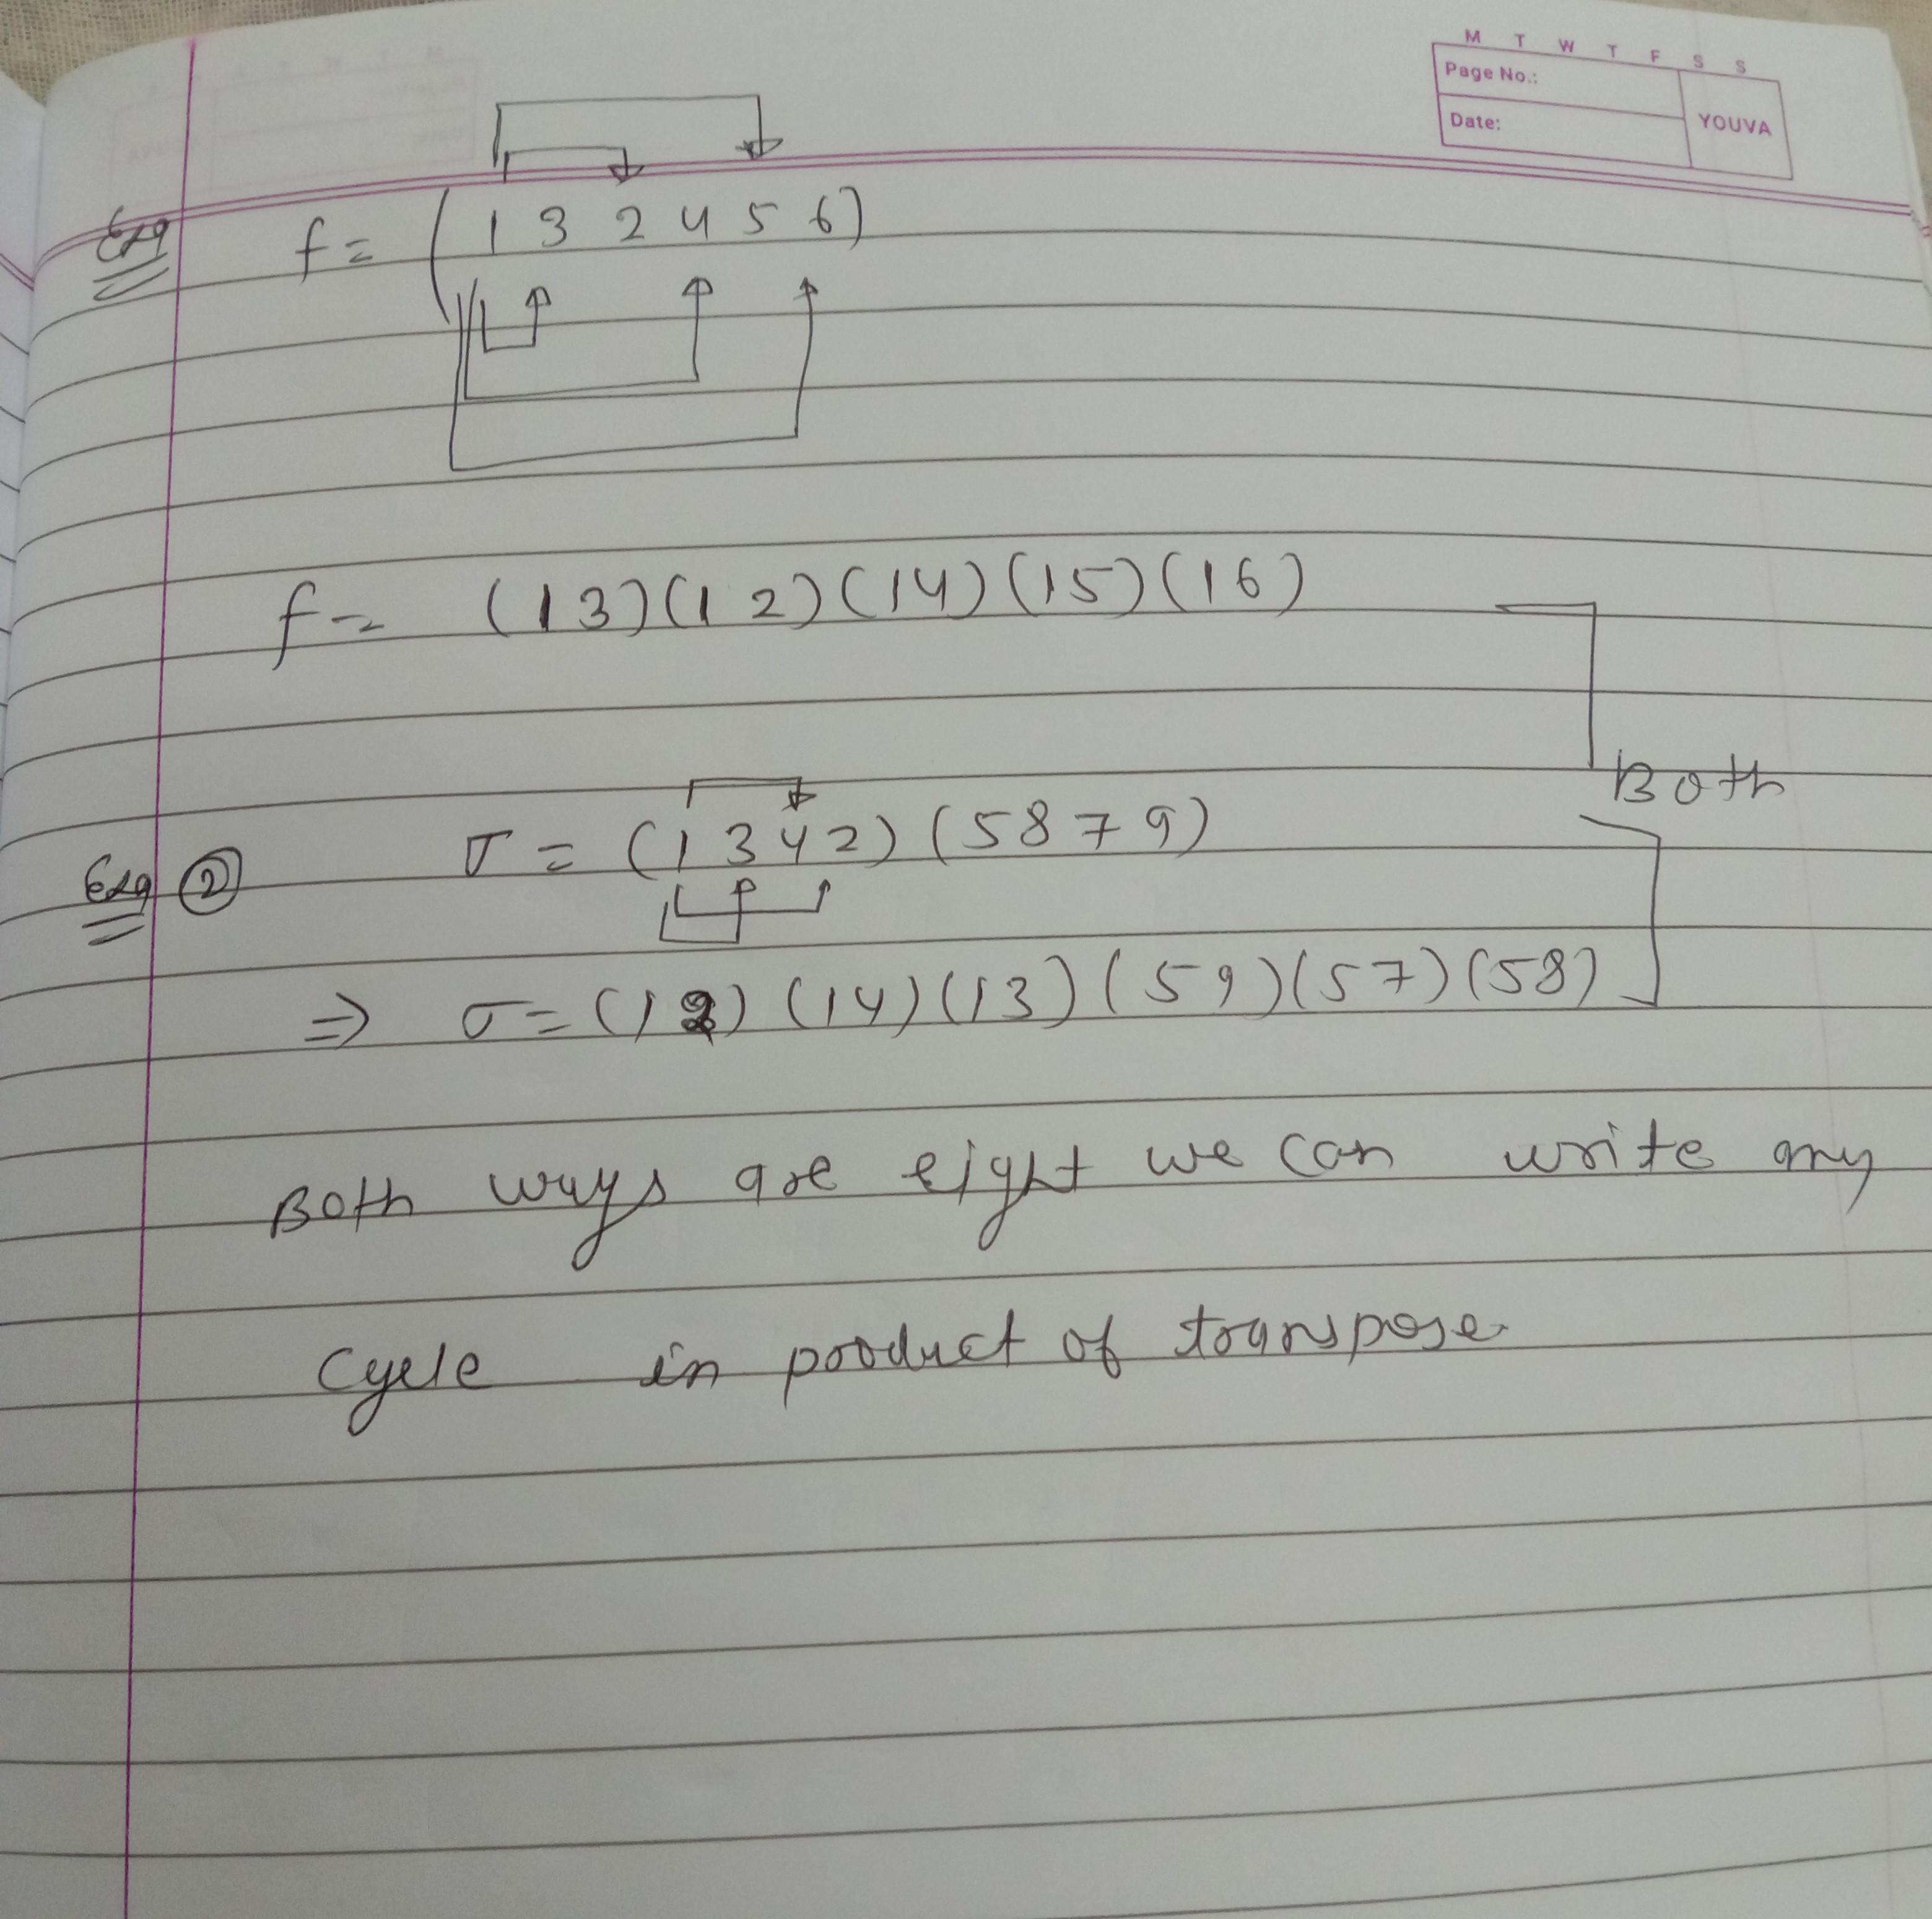 M T W T F S S
Page No.:
Date:
YOUVA
f = (1 3 2 4 5 6)
f = (1 3)(1 2)(14)(15)(16)
Both
② σ = (1 3 4 2)(5 8 7 9)
⇒ σ = (1 2)(14)(13)(59)(57)(58)
Both ways are eight we can write any
cycle in product of transpose